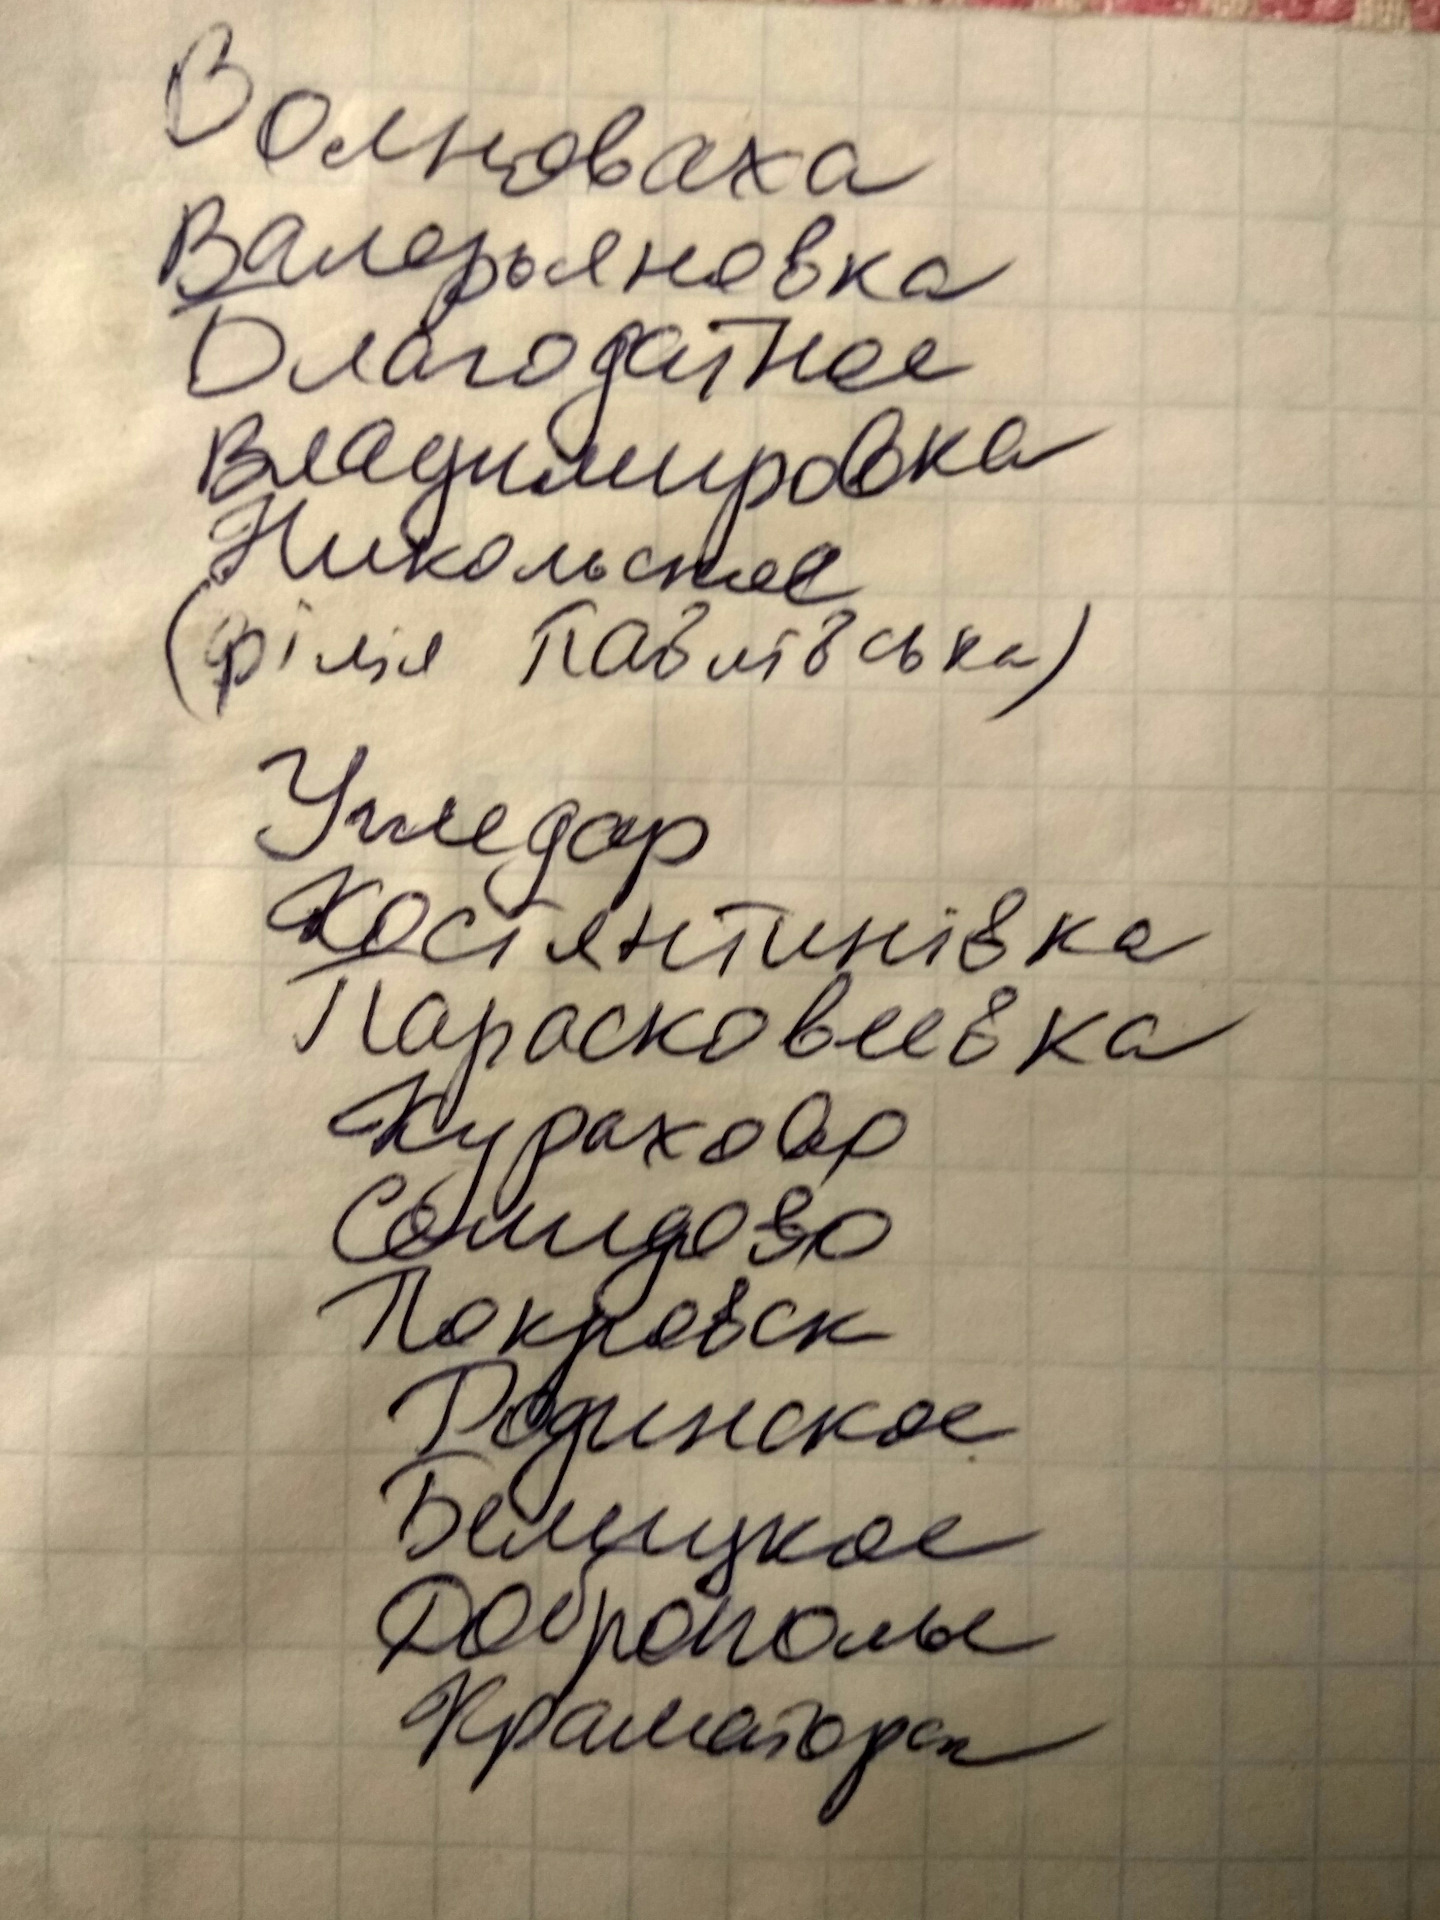 Волноваха
Валерьяновка
Благодатное
Владимировка
Никольское
(філія Павлівська)
Угледар
Костянтинівка
Парасковеевка
Курахово
Селидово
Покровск
Родинское
Белицкое
Доброполье
Краматорск